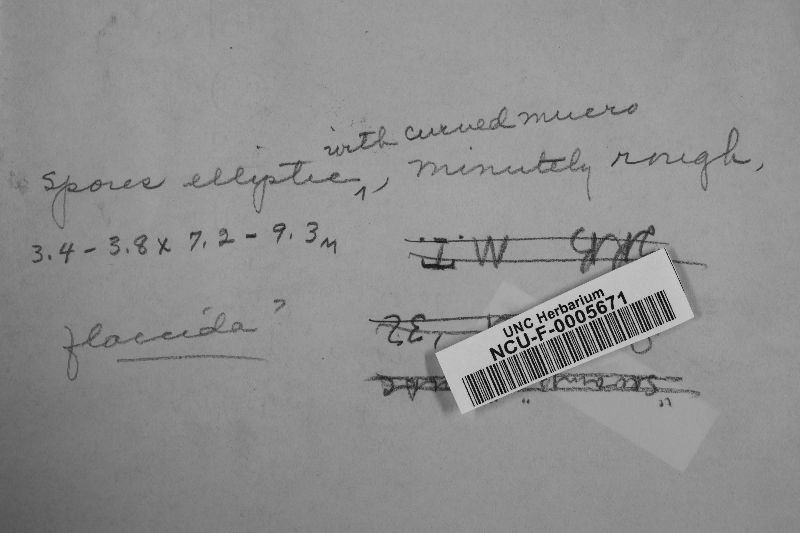 Spores elliptic with curved mucro, minutely rough,
3.4 - 3.8 x 7.2 - 9.3 µ
flaccida ?
UNC Herbarium
NCU-F-0005671